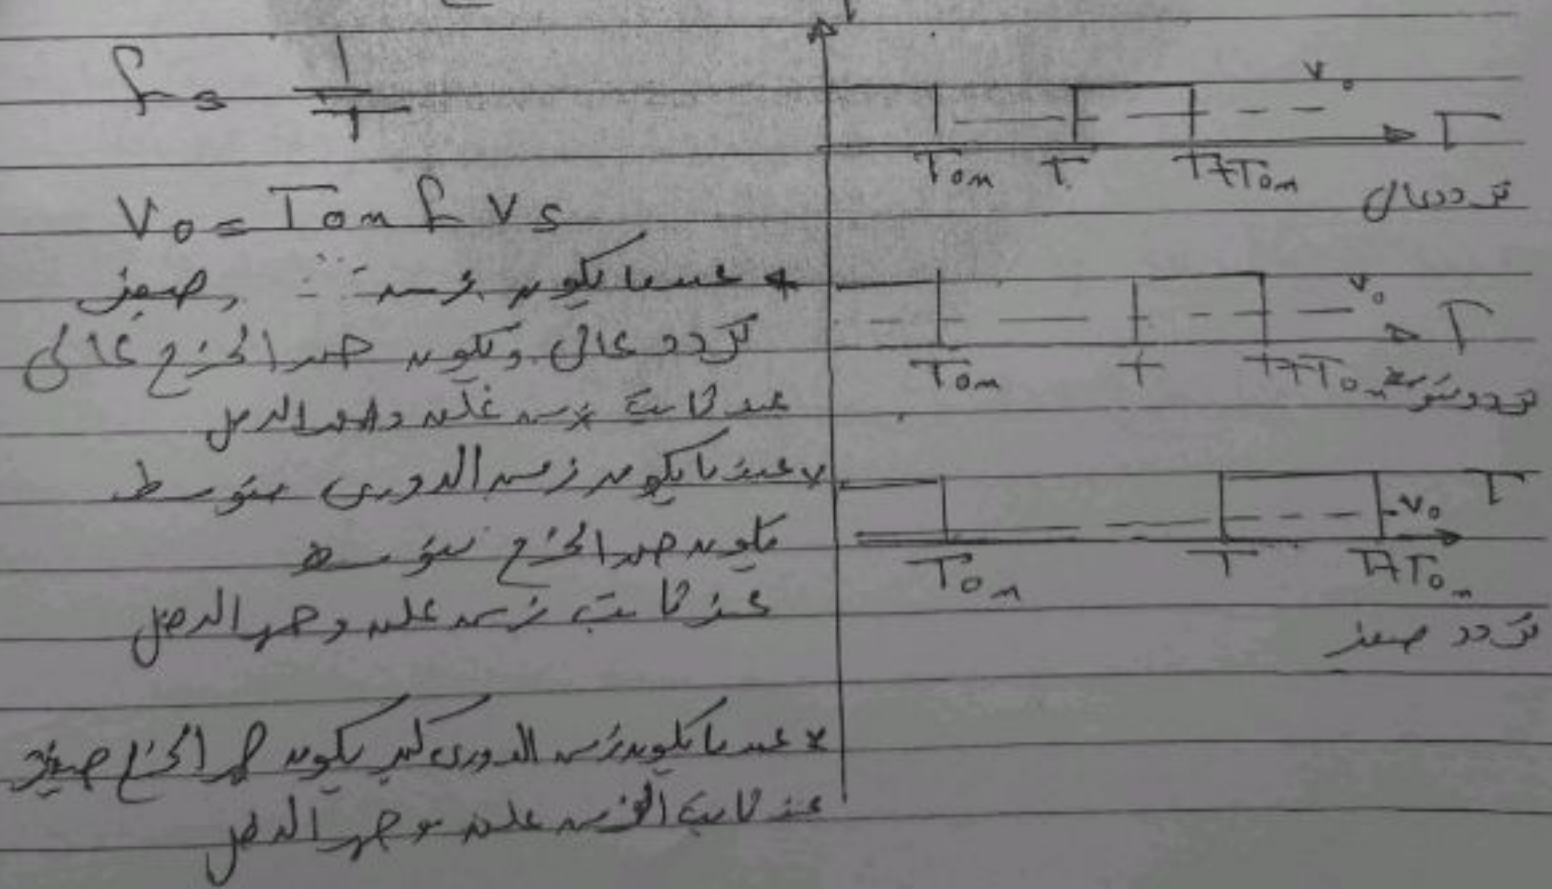 f = 1/T
Vo = Ton f Vs
* عندما يكون زمن صغير
تردد عالي ويكون جهد الخرج عالي
عند ثابت زمن غلق وجهد الدخل
* عندما يكون زمن الدوري متوسط
يكون جهد الخرج متوسط
عند ثابت زمن غلق وجهد الدخل
* عندما يكون زمن الدوري كبير يكون جهد الخرج صغير
عند ثابت الزمن غلق وجهد الدخل
Vo
T
Ton T T+Ton
تردد عال
Vo
T
Ton T T+Ton
تردد متوسط
T
Vo
Ton T T+Ton
تردد صغير